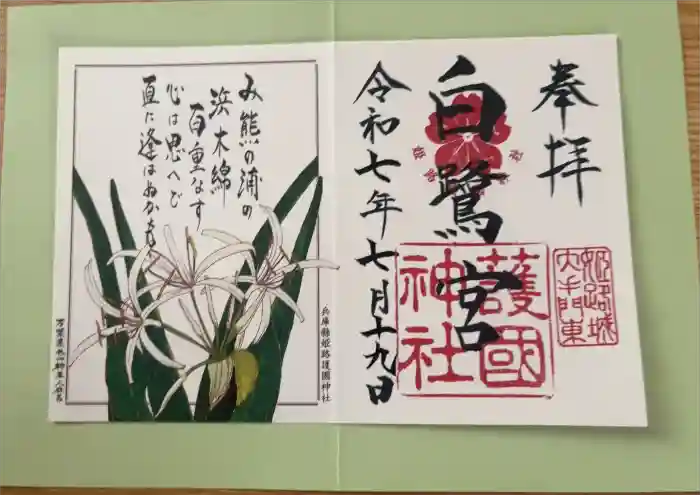 奉拝
白鷺宮
護國
神社
姫路城
大手門東
令和七年七月十九日
み熊の浦の
浜木綿
百重なす
心は思へど
直に逢はぬかも
兵庫県姫路護國神社